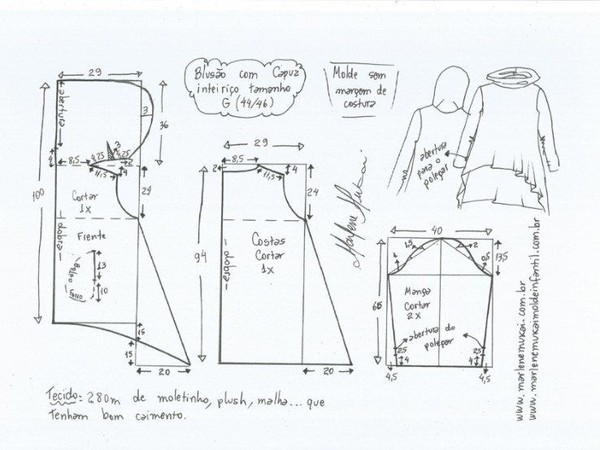 Blusão com Capuz
inteiriço tamanho
G (44/46)
Molde sem
margem de
costura
29
abertura
3
36
4
8,5
3
4
11,5
100
24
Cortar
1x
dobra
Frente
Bolso
Fundo
13
10
15
15
20
29
8,5
2
4
11,5
24
94
Costas
Cortar
1x
dobra
20
abertura
para o
polegar
Marlene Mukai
40
1,5
2
13,5
66
Manga
Cortar
2x
abertura do
polegar
4
4
4,5
4,5
www.marlenemukai.com.br
www.marlenemukaimoldeinfantil.com.br
Tecido: 280m de moletinho, plush, malha... que
tenham bom caimento.